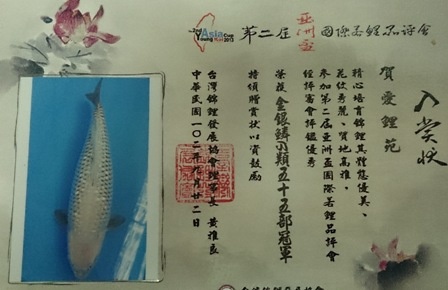 2nd Asia Cup
Young Koi 2013
第二屆亞洲盃國際若鯉品評會
入賞狀
賀愛鯉苑
精心培育錦鯉其體態優美、
花紋秀麗、質地高雅。
參加第二屆亞洲盃國際若鯉品評會
經評審會評鑑優秀
榮獲金銀鱗B類五十五部冠軍
特頒贈賞狀以資鼓勵
台灣錦鯉發展協會理事長 黃雅良
中華民國一〇二年九月廿二日